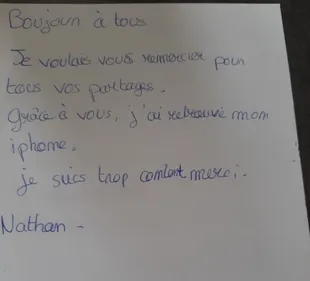 Boujoun à tous
Je voulais vous remercier pour
tous vos partages.
Grâce à vous, j'ai retrouvé mon
iphone.
je suis trop content merci.
Nathan -